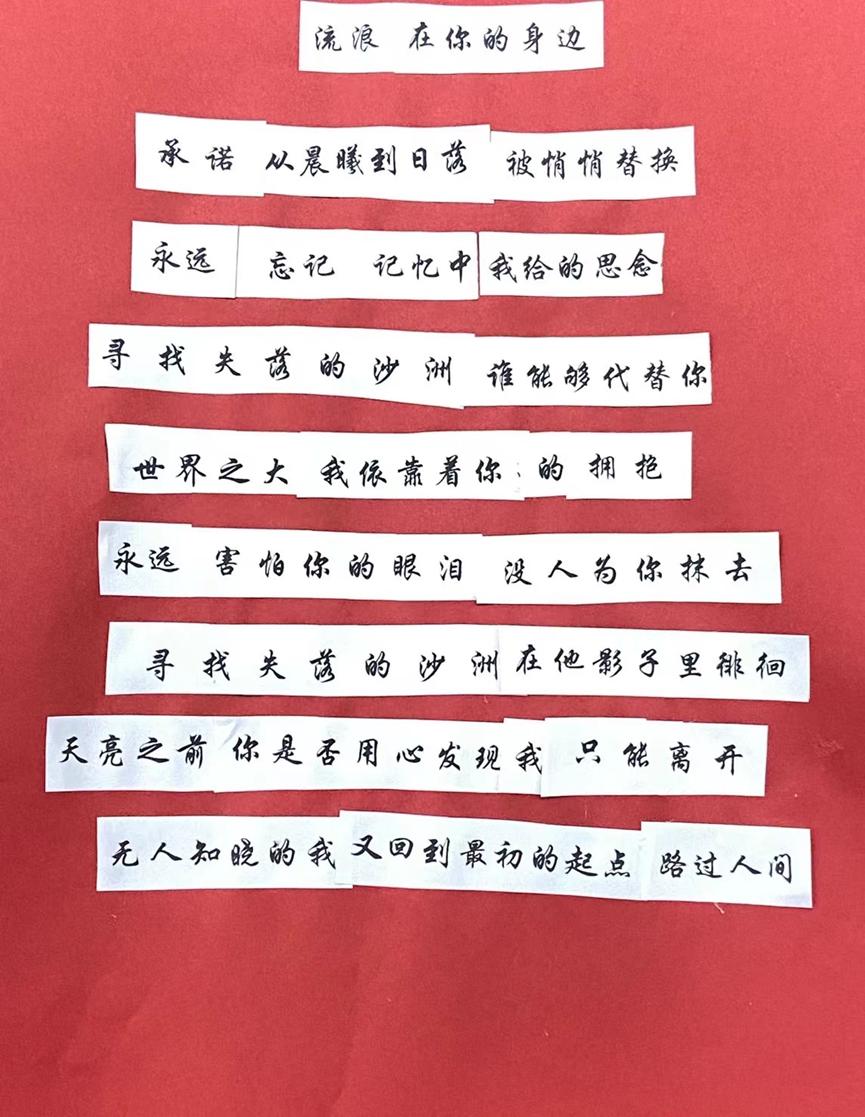 流浪 在你的身边
承诺 从晨曦到日落 被悄悄替换
永远 忘记 记忆中 我给的思念
寻找失落的沙洲 谁能够代替你
世界之大 我依靠着你 的拥抱
永远 害怕你的眼泪 没人为你抹去
寻找失落的沙洲 在他影子里徘徊
天亮之前 你是否用心发现 我 只能离开
无人知晓的我 又回到最初的起点 路过人间